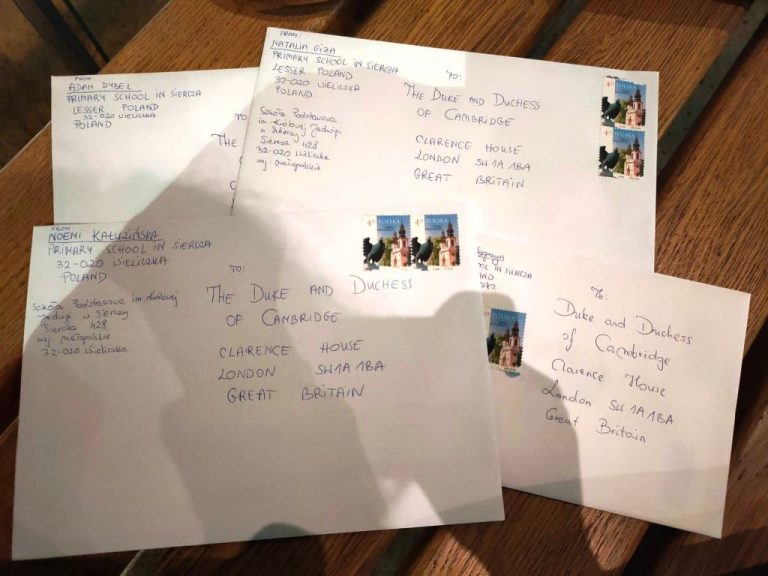 FROM:
ADAM DYBEL
PRIMARY SCHOOL IN SIERCZA
LESSER POLAND
32-020 WIELICZKA
POLAND
TO
THE
FROM:
NATALIA GIZA
PRIMARY SCHOOL IN SIERCZA
LESSER POLAND
32-020 WIELICZKA
POLAND
Szkoła Podstawowa
im. Królowej Jadwigi
w Sierczy
Siercza 428
32-020 Wieliczka
woj. małopolskie
TO:
THE DUKE AND DUCHESS
OF CAMBRIDGE
CLARENCE HOUSE
LONDON SW1A 1BA
GREAT BRITAIN
FROM:
NOEMI KAŁUZIŃSKA
PRIMARY SCHOOL IN SIERCZA
32-020 WIELICZKA
POLAND
Szkoła Podstawowa im. Królowej
Jadwigi w Sierczy
Siercza 428
woj. małopolskie
32-020 WIELICZKA
TO:
THE DUKE AND DUCHESS
OF CAMBRIDGE
CLARENCE HOUSE
LONDON SW1A 1BA
GREAT BRITAIN
POLSKA
POLSKA
IN SIERCZA
To:
Duke and Duchess
of Cambridge
Clarence House
London SW1A 1BA
Great Britain